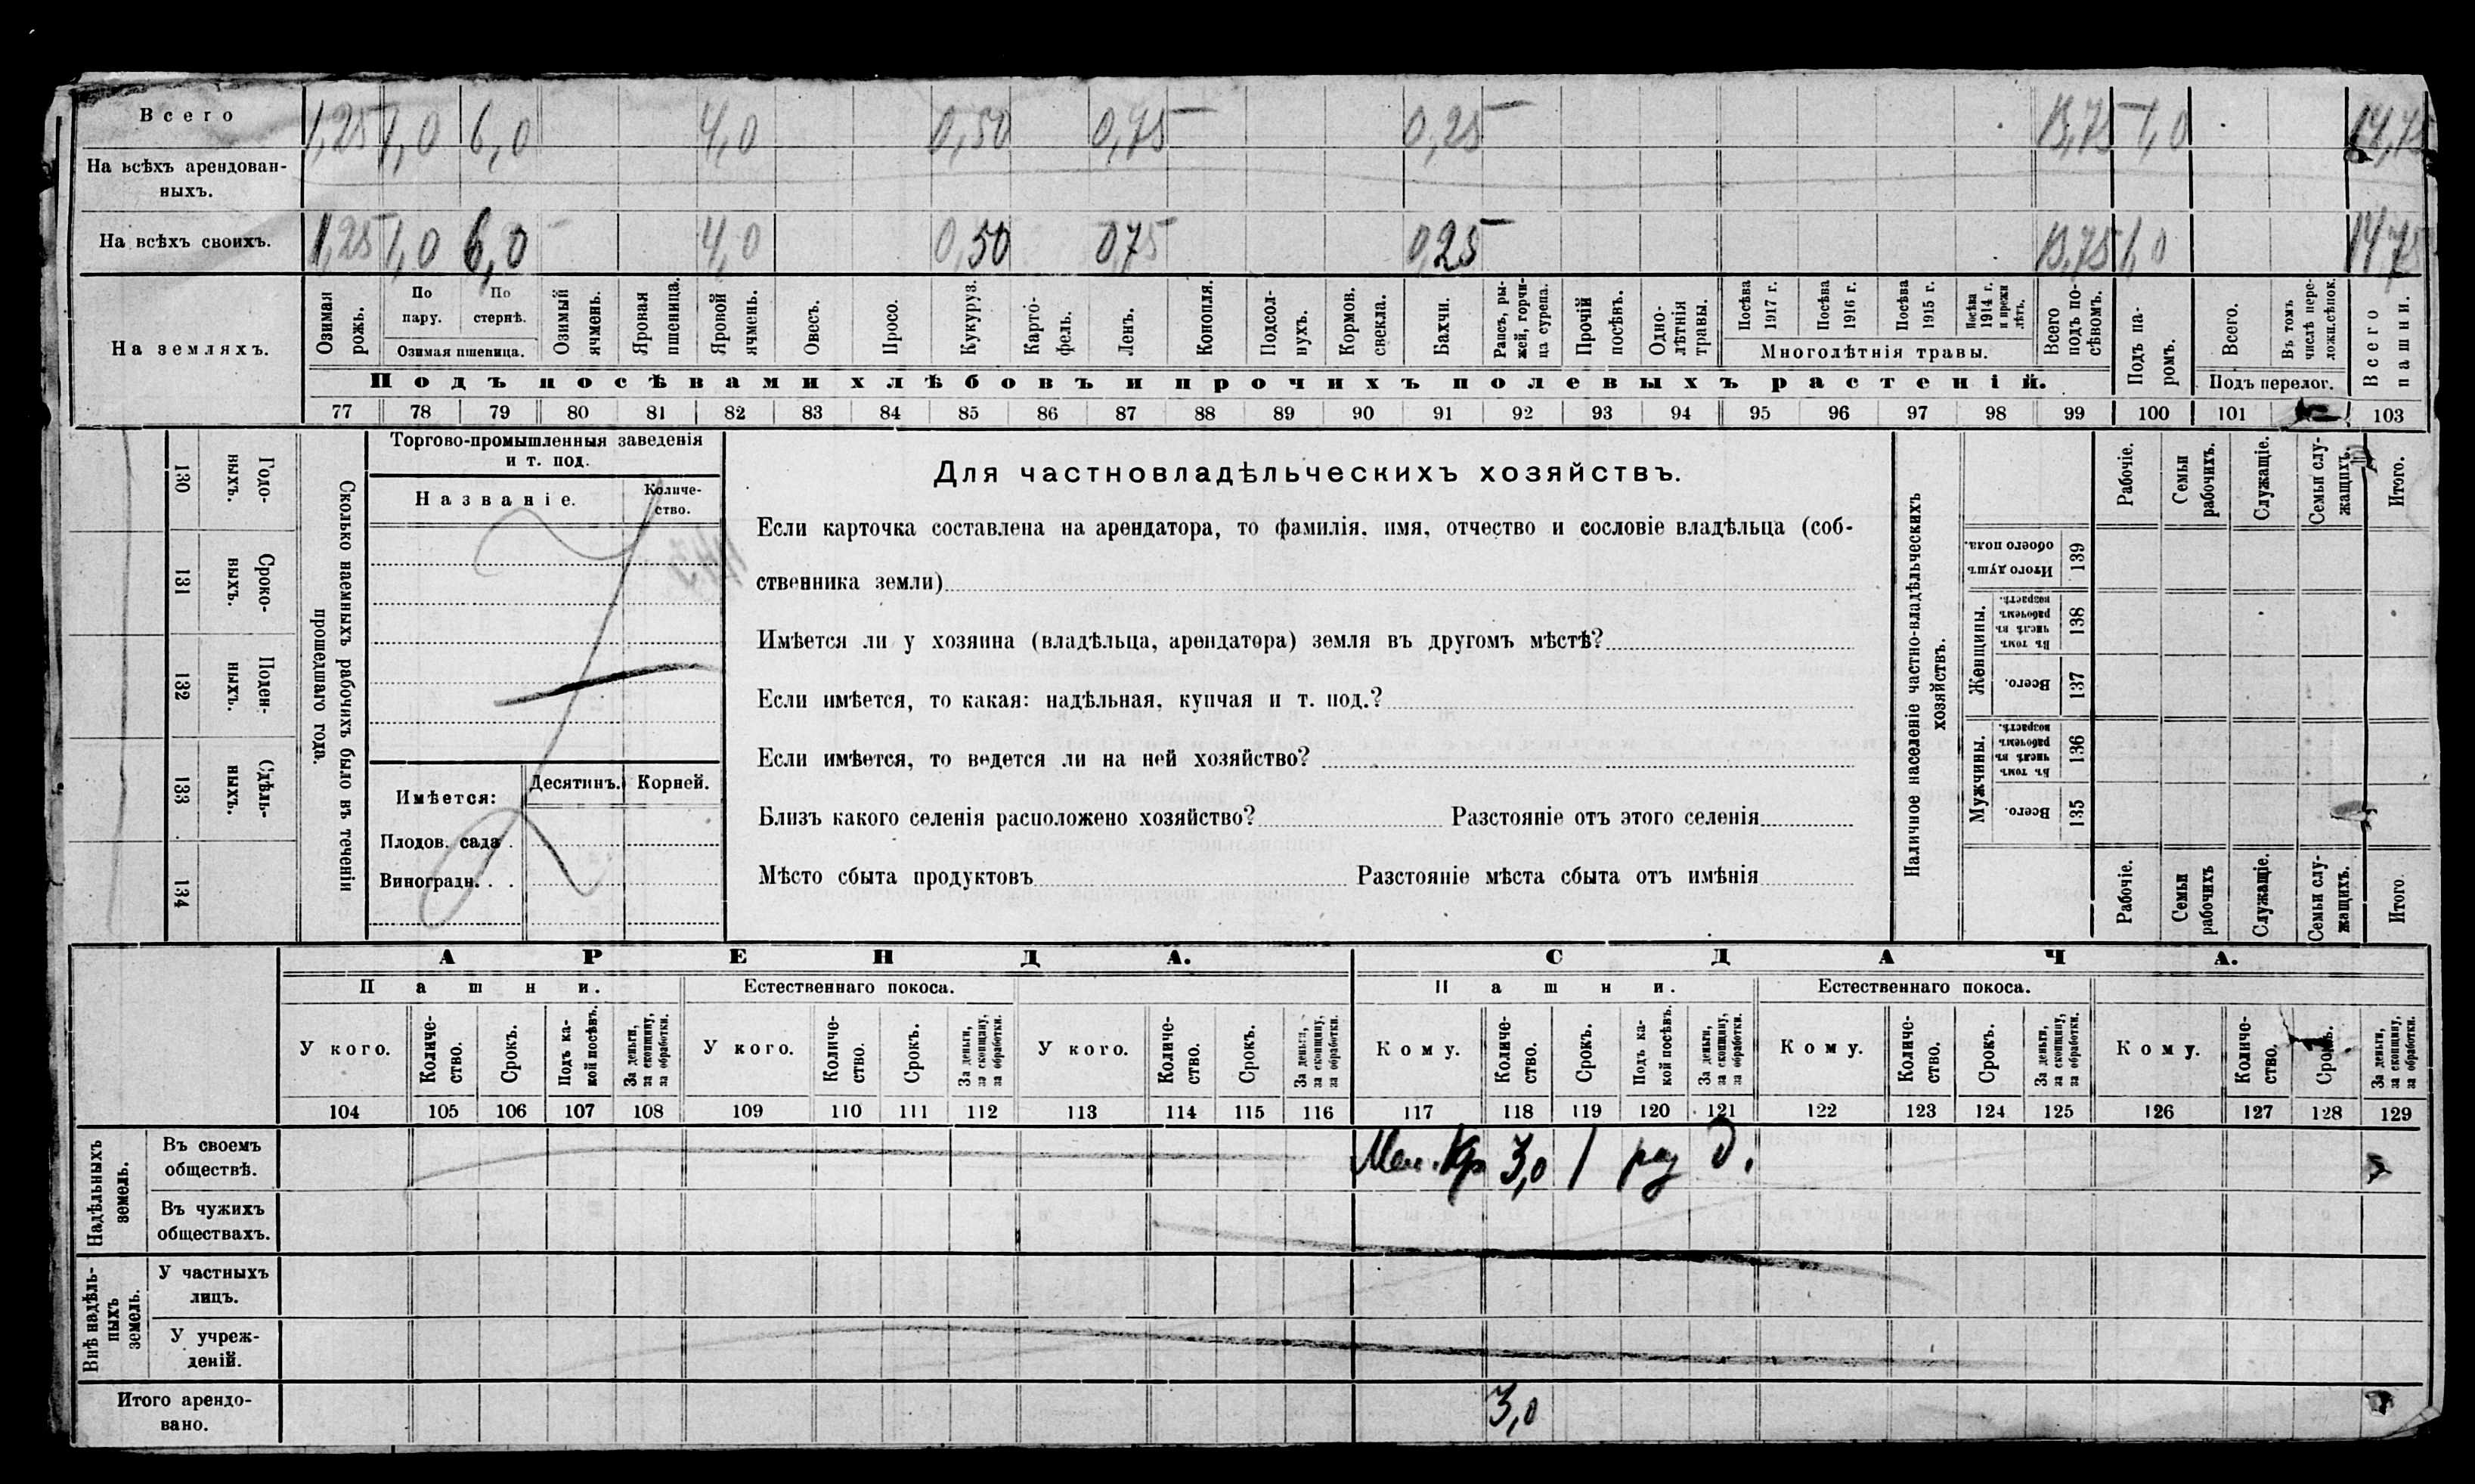 Всего 1,25 1,0 6,0 4,0 0,50 0,75 0,25 13,75 1,0 14,75
На всѣхъ арендован-
ныхъ.
На всѣхъ своихъ. 1,25 1,0 6,0 4,0 0,50 0,75 0,25 13,75 1,0 14,75
На земляхъ.
Озимая рожь.
По пару.
По стернѣ.
Озимая пшеница.
Озимый ячмень.
Яровая пшеница.
Яровой ячмень.
Овесъ.
Просо.
Кукуруз.
Карто-
фель.
Ленъ.
Конопля.
Подсол-
нухъ.
Кормов. свекла.
Бахчи.
Рапсъ, ры-
жей, горчи-
ца сурепа.
Прочій посѣвъ.
Одно-
лѣтнія травы.
Посѣва 1917 г.
Посѣва 1916 г.
Посѣва 1915 г.
Посѣва 1914 г. и прежн лѣтъ.
Многолѣтнія травы.
Всего подъ по-
сѣвомъ.
Подъ па-
ромъ.
Всего.
Въ томъ числѣ пере-
ложн.сѣнок.
Подъ перелог.
Всего пашни.
Подъ посѣвами хлѣбовъ и прочихъ полевыхъ растеній.
77 78 79 80 81 82 83 84 85 86 87 88 89 90 91 92 93 94 95 96 97 98 99 100 101 103
130 Годо-
ныхъ.
131 Сроко-
ныхъ.
132 Поден-
ныхъ.
133 Сдѣль-
ныхъ.
134
Сколько наемныхъ рабочихъ было въ теченіи
прошедшаго года.
Торгово-промышленныя заведенія
и т. под.
Названіе.
Количе-
ство.
Имѣется:
Десятинъ.
Корней.
Плодов. сада .
Виноградн. . .
Для частновладѣльческихъ хозяйствъ.
Если карточка составлена на арендатора, то фамилія, имя, отчество и сословіе владѣльца (соб-
ственника земли)
Имѣется ли у хозяина (владѣльца, арендатора) земля въ другомъ мѣстѣ?
Если имѣется, то какая: надѣльная, купчая и т. под.?
Если имѣется, то ведется ли на ней хозяйство?
Близъ какого селенія расположено хозяйство? Разстояніе отъ этого селенія
Мѣсто сбыта продуктовъ Разстояніе мѣста сбыта отъ имѣнія
Наличное населеніе частно-владѣльческихъ
хозяйствъ.
Рабочіе.
Семьи рабочихъ.
Служащіе.
Семьи слу-
жащихъ.
Итого.
Итого душъ обоего пола. 139
Женщины.
Въ томъ числѣ въ рабочемъ возрастѣ. 138
Всего. 137
Мужчины.
Въ томъ числѣ въ рабочемъ возрастѣ. 136
Всего. 135
Рабочіе.
Семьи рабочихъ
Служащіе.
Семьи слу-
жащихъ.
Итого.
АРЕНДА.
СДАЧА.
Пашни.
Естественнаго покоса.
Пашни.
Естественнаго покоса.
У кого.
Количе-
ство.
Срокъ.
Подъ ка-
кой посѣвъ.
За деньги, за скопщину, за обработки.
У кого.
Количе-
ство.
Срокъ.
За деньги, за скопщину, за обработки.
У кого.
Количе-
ство.
Срокъ.
За деньги, за скопщину, за обработки.
Кому.
Количе-
ство.
Срокъ.
Подъ ка-
кой посѣвъ.
За деньги, за скопщину, за обработки.
Кому.
Количе-
ство.
Срокъ.
За деньги, за скопщину, за обработки.
Кому.
Количе-
ство.
Срокъ.
За деньги, за скопщину, за обработки.
104 105 106 107 108 109 110 111 112 113 114 115 116 117 118 119 120 121 122 123 124 125 126 127 128 129
Надѣльныхъ
земель.
Въ своемъ
обществѣ.
3,0 1 раз д.
Въ чужихъ
обществахъ.
Внѣ надѣль-
ныхъ
земель.
У частныхъ
лицъ.
У учреж-
деній.
Итого арендо-
вано.
3,0